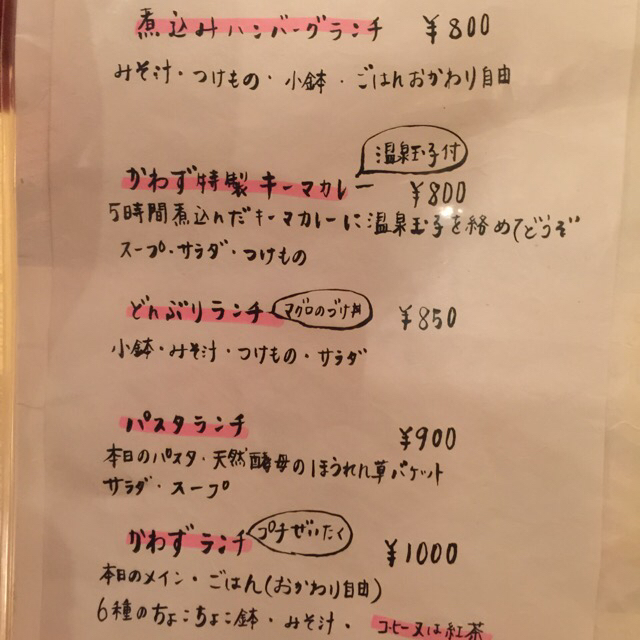 煮込みハンバーグランチ ¥800
みそ汁・つけもの・小鉢・ごはんおかわり自由
温泉玉子付
かわず特製キーマカレー ¥800
5時間煮込んだキーマカレーに温泉玉子を絡めてどうぞ
スープ・サラダ・つけもの
どんぶりランチ マグロのづけ丼 ¥850
小鉢・みそ汁・つけもの・サラダ
パスタランチ ¥900
本日のパスタ・天然酵母のほうれん草バケット
サラダ・スープ
かわずランチ プチぜいたく ¥1000
本日のメイン・ごはん(おかわり自由)
6種のちょこちょこ鉢・みそ汁・コーヒー又は紅茶